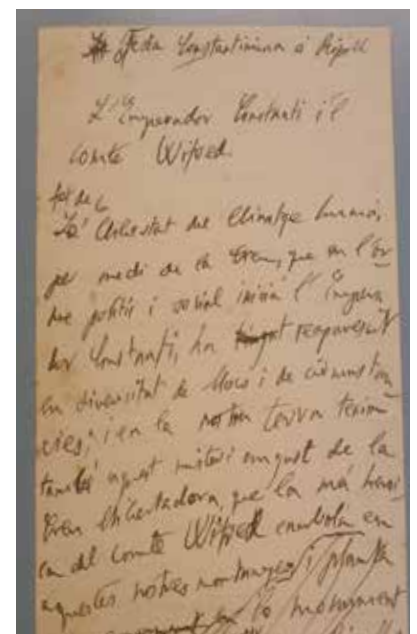 Festa Constantiniana a Ripoll
L'Emperador Constantí i'l
comte Wifred.
fet de
La llibertat del llinatge humà,
per medi de la Creu, que en l'or
dre politic i social inicia l'Empera
dor Constantí, ha reaparescut
en diversitat de llocs i de circumstan
cies; i en la nostra terra tenim
també aquest misteri august de la
Creu llibertadora, que la má heroi
ca del comte Wifred enarbola en
aquestes nostres montanyes i planta
en lo monument